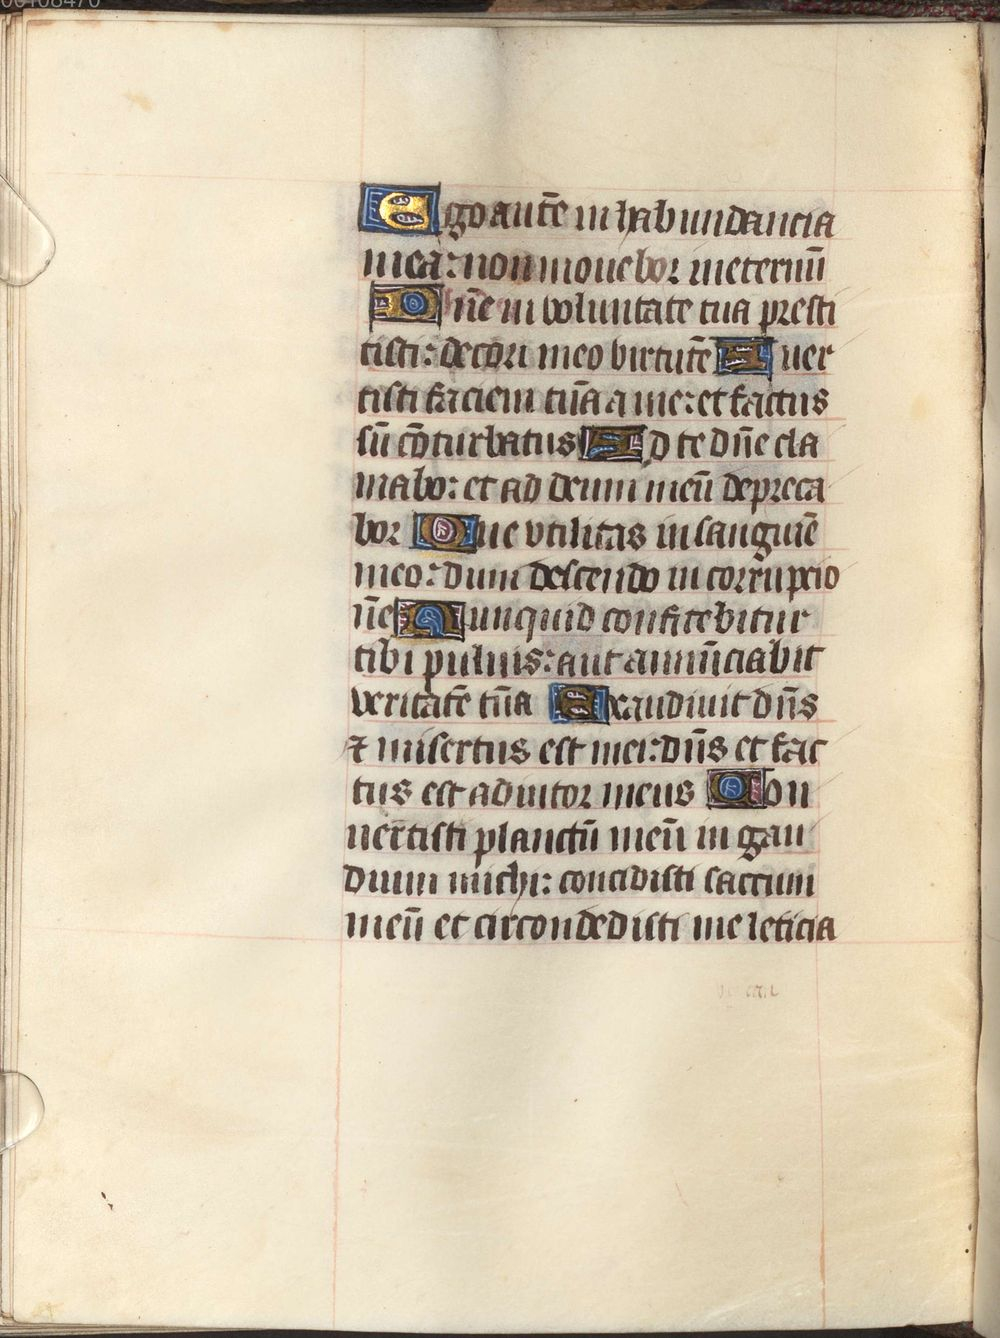 Ego autē in habundancia
mea: non mouebor ineternū
Dn̄e in voluntate tua presti
tisti: decori meo virtutē Auer
tisti faciem tuā a me: et factus
sū cōturbatus Ad te dn̄e cla
mabo: et ad deum meū depreca
bor Que vtilitas in sanguīe
meo: dum descendo in corrupcio
n̄e Nunquid confitebitur
tibi puluis: aut annūciabit
veritatē tuā Exaudiuit dn̄s
⁊ misertus est mei: dn̄s et fac
tus est adiutor meus Con
uertisti planctū meū in gau
dium michi: concidisti saccum
meū et circondedisti me leticia